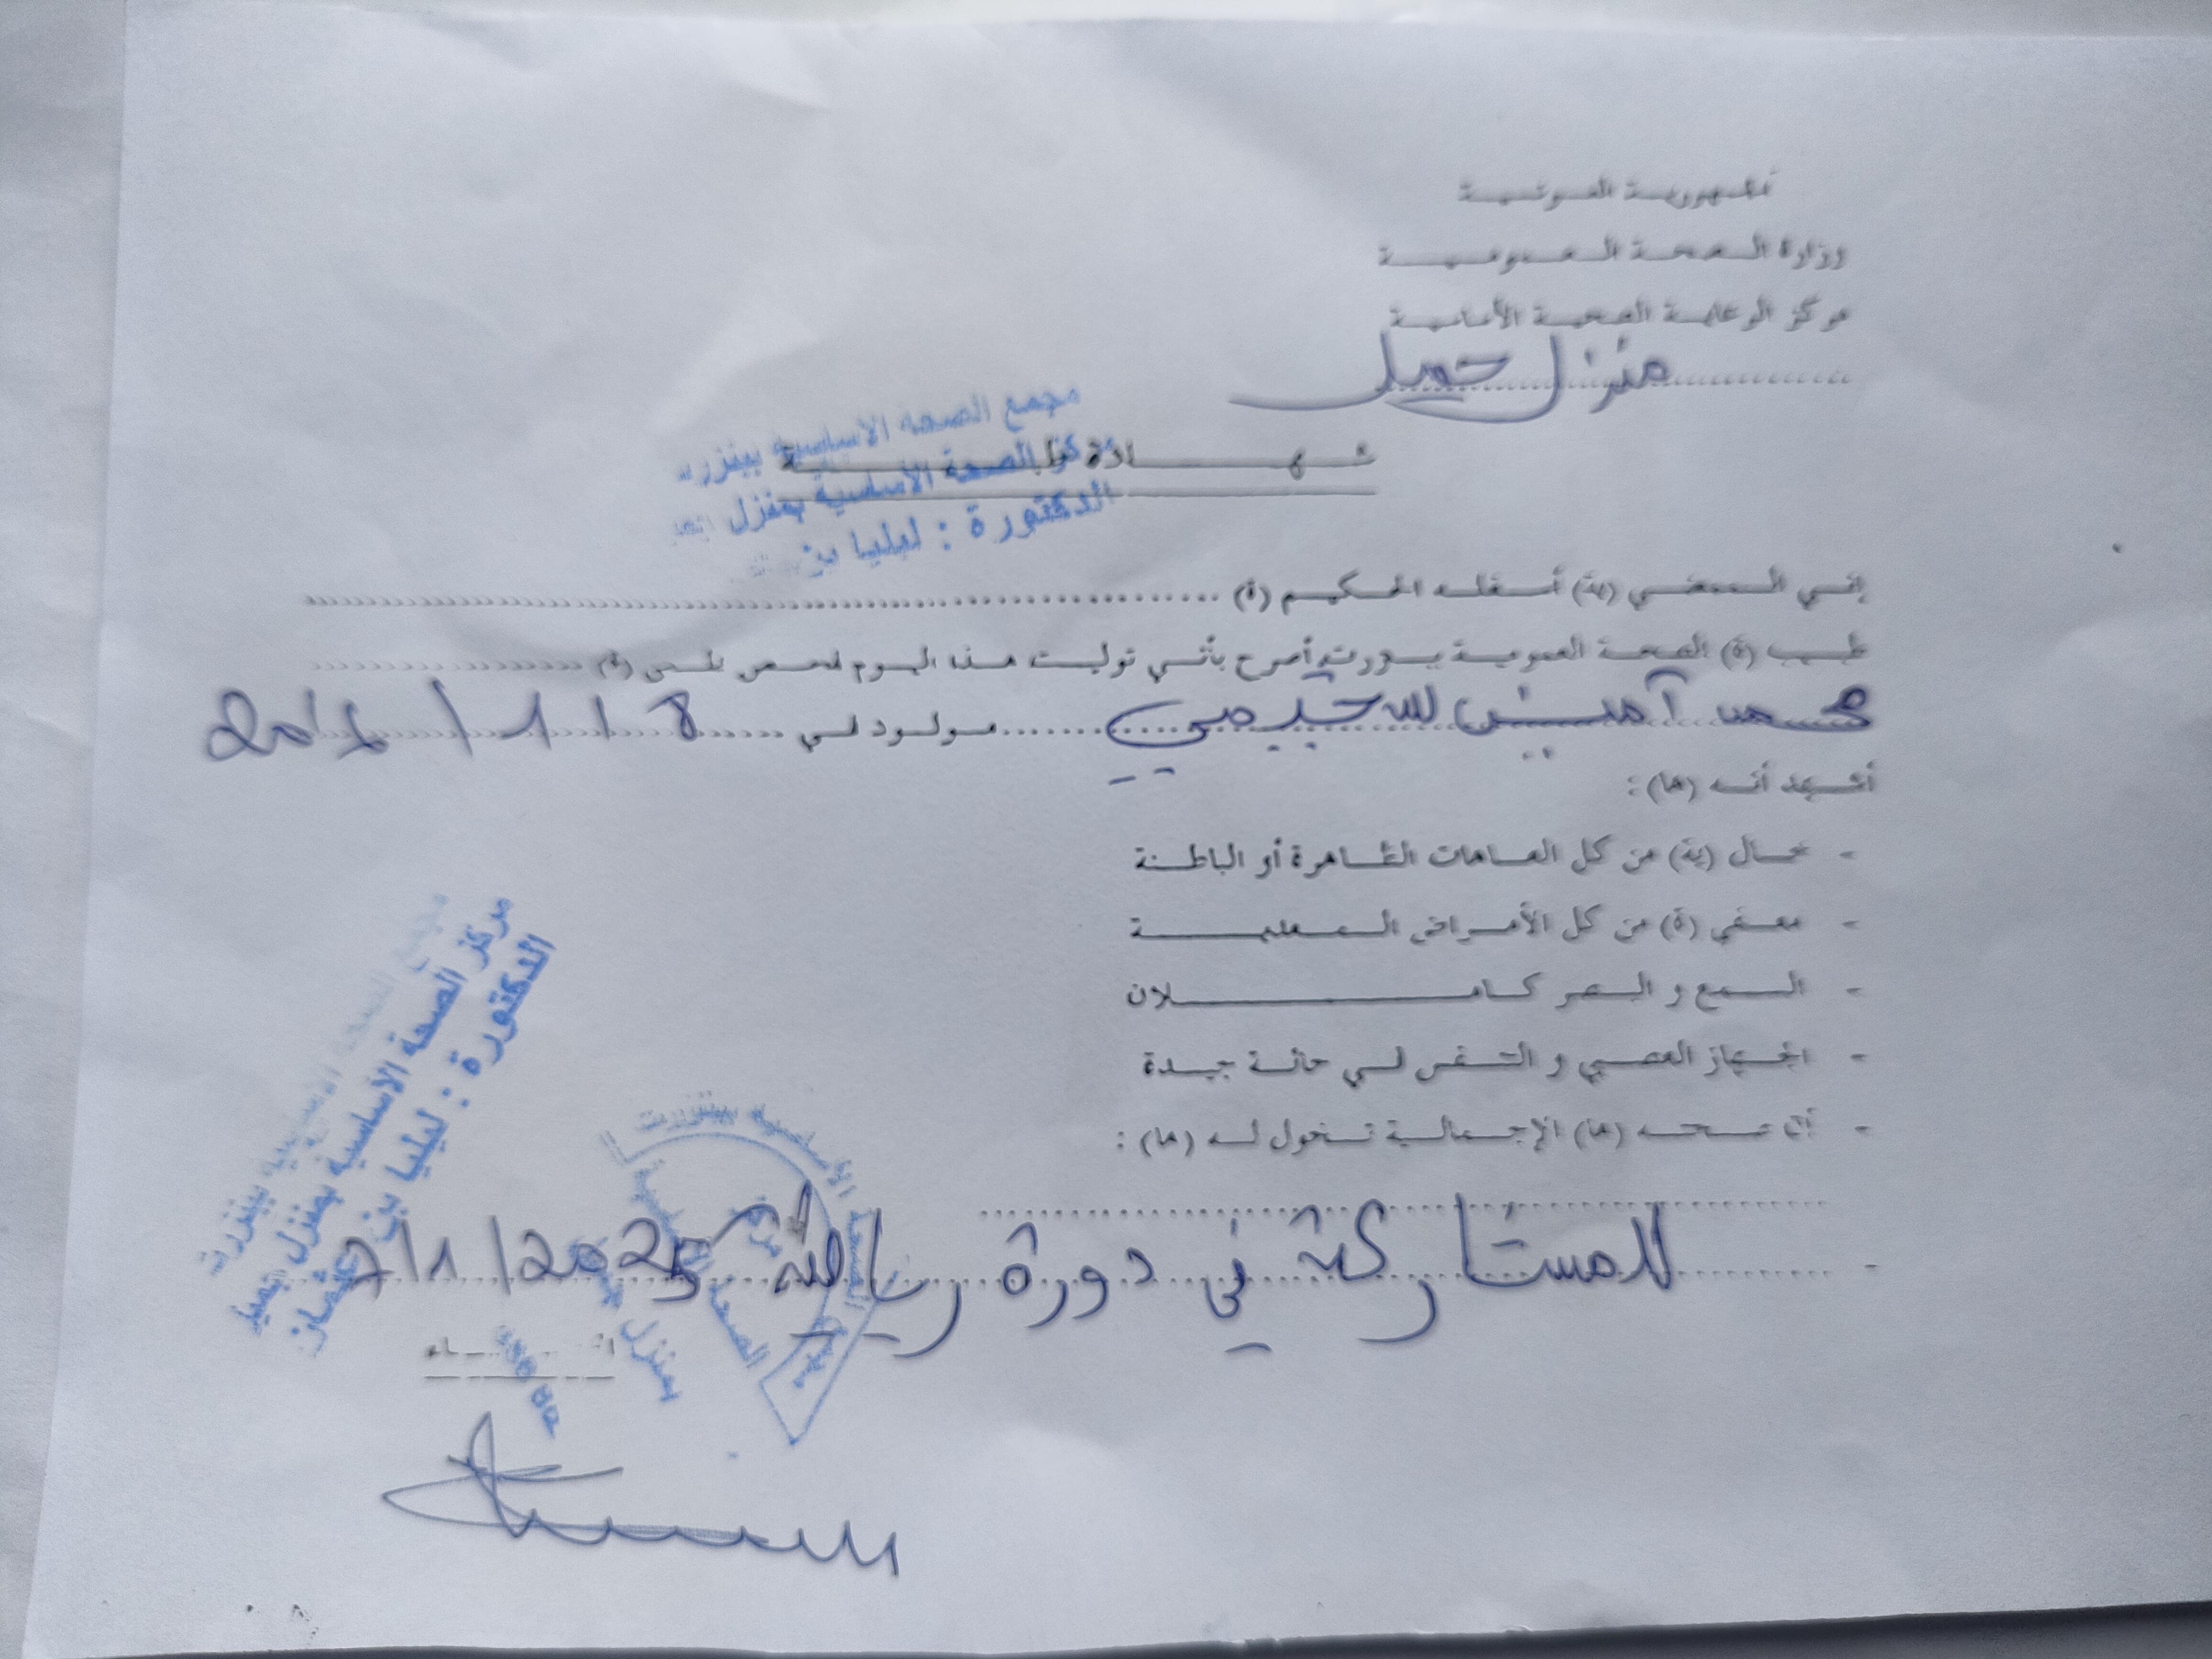 الجمهورية التونسية
وزارة الصحة العمومية
مركز الرعاية الصحية الأساسية
منزل جميل
شهادة طبية
مجمع الصحة الأساسية ببنزرت
مركز الصحة الأساسية بمنزل جميل
الدكتورة : ليليا بن
إني الممضي (ية) أسفله الحكيم (ة)
طبيب (ة) الصحة العمومية ببنزرت أصرح بأنني توليت هذا اليوم فحص طبي (ة)
محمد أمين مولود في 8 / 1 /
أشهد أنه (ها) :
- خال (ية) من كل العاهات الظاهرة أو الباطنة
- معفي (ة) من كل الأمراض المعدية
- السمع و البصر كاملان
- الجهاز العصبي و التنفس في حالة جيدة
- أن صحته (ها) الإجمالية تخول له (ها) :
- للمشاركة في دورة رياضية 7/1/2025
الإمضاء
مجمع الصحة الأساسية ببنزرت
مركز الصحة الأساسية بمنزل جميل
الدكتورة : ليليا بن عثمان